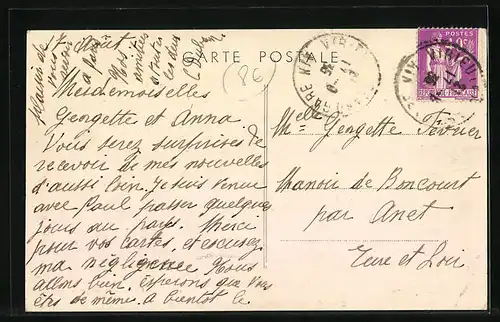 17 Août
CARTE POSTALE
(86)
POSTES
Mesdemoiselles
Georgette et Anna
Vous serez surprises de
recevoir de mes nouvelles
d'aussi loin. Je suis venue
avec Paul passer quelques
jours au pays. Merci
pour vos cartes, et excusez
ma négligence Nous
allons bien. Esperons que Vous
êtes de même. A bientôt le
plaisir de
vous
à
Nos
amitiés
à toutes
les deux
Melle Georgette Février
Manoir de Boncourt
par Anet
Eure et Loir